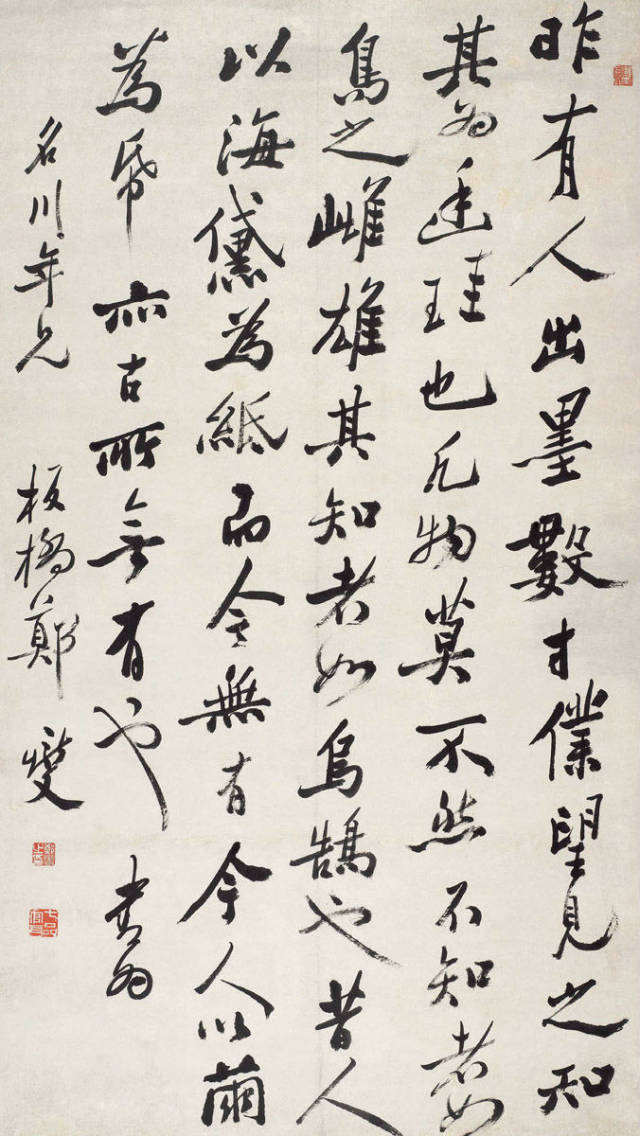 昨有人出墨數寸僕望見之知
其為廷珪也凡物莫不然不知者如
烏之雌雄其知者如烏鵠也昔人
以海黛為紙而今無有今人以繭
為帋亦古所無有也 書為
名川年兄 板橋鄭燮
七品官耳